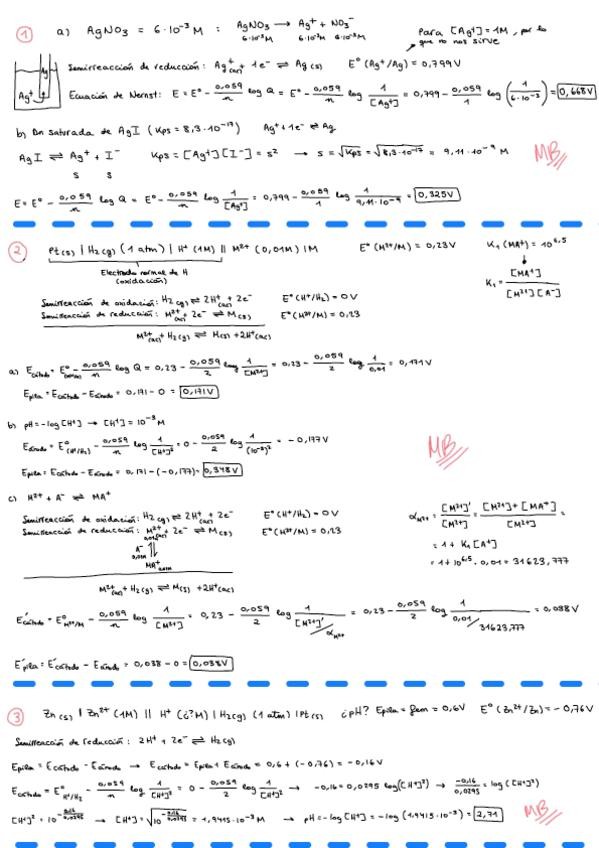 1 a) AgNO3 = 6·10⁻³ M : AgNO3 → Ag⁺ + NO3⁻
6·10⁻³M 6·10⁻³M 6·10⁻³M
Para [Ag⁺] = 1M, por lo que no nos sirve
Semirreacción de reducción: Ag⁺(ac) + 1e⁻ ⇌ Ag(s) E°(Ag⁺/Ag) = 0,799V
Ag
Ag⁺
Ecuación de Nernst: E = E° - 0,059/n log Q = E° - 0,059/n log 1/[Ag⁺] = 0,799 - 0,059/1 log (1/6·10⁻³) = 0,668V
b) Dn saturada de AgI (Kps = 8,3·10⁻¹⁷) Ag⁺ + 1e⁻ ⇌ Ag
AgI ⇌ Ag⁺ + I⁻ Kps = [Ag⁺][I⁻] = s² → s = √Kps = √8,3·10⁻¹⁷ = 9,11·10⁻⁹ M MB
s s
E = E° - 0,059/n log Q = E° - 0,059/n log 1/[Ag⁺] = 0,799 - 0,059/1 log 1/9,11·10⁻⁹ = 0,325V
2 Pt(s) | H2(g) (1 atm) | H⁺ (1M) || M²⁺ (0,01M) | M E°(M²⁺/M) = 0,23V K1(MA⁺) = 10⁶·⁵
Electrodo normal de H (oxidación)
K1 = [MA⁺]/[M²⁺][A⁻]
Semirreacción de oxidación: H2(g) ⇌ 2H⁺(ac) + 2e⁻ E°(H⁺/H2) = 0V
Semirreacción de reducción: M²⁺(ac) + 2e⁻ ⇌ M(s) E°(M²⁺/M) = 0,23
M²⁺(ac) + H2(g) ⇌ M(s) + 2H⁺(ac)
a) Ecátodo = E° - 0,059/n log Q = 0,23 - 0,059/2 log 1/[M²⁺] = 0,23 - 0,059/2 log 1/0,01 = 0,171V
Epila = Ecátodo - Eánodo = 0,171 - 0 = 0,171V
b) pH = -log[H⁺] → [H⁺] = 10⁻³M
Eánodo = E°(H⁺/H2) - 0,059/n log 1/[H⁺]² = 0 - 0,059/2 log 1/(10⁻³)² = -0,177V
MB
Epila = Ecátodo - Eánodo = 0,171 - (-0,177) = 0,348V
c) M²⁺ + A⁻ ⇌ MA⁺
Semirreacción de oxidación: H2(g) ⇌ 2H⁺(ac) + 2e⁻ E°(H⁺/H2) = 0V
Semirreacción de reducción: M²⁺(ac) + 2e⁻ ⇌ M(s) E°(M²⁺/M) = 0,23
0,01M
A⁻
0,01M
MA⁺
0,01M
αM²⁺ = [M²⁺]'/[M²⁺] = [M²⁺]+[MA⁺]/[M²⁺] =
= 1 + K1[A⁻]
= 1 + 10⁶·⁵ · 0,01 = 31623,777
M²⁺(ac) + H2(g) ⇌ M(s) + 2H⁺(ac)
E'cátodo = E°M²⁺/M - 0,059/n log 1/[M²⁺] = 0,23 - 0,059/2 log 1/[M²⁺]'/αM²⁺ = 0,23 - 0,059/2 log 1/0,01/31623,777 = 0,038V
E'pila = E'cátodo - Eánodo = 0,038 - 0 = 0,038V
3 Zn(s) | Zn²⁺ (1M) || H⁺ (¿?M) | H2(g) (1 atm) | Pt(s) ¿pH? Epila = fem = 0,6V E°(Zn²⁺/Zn) = -0,76V
Semirreacción de reducción: 2H⁺ + 2e⁻ ⇌ H2(g)
Epila = Ecátodo - Eánodo → Ecátodo = Epila + Eánodo = 0,6 + (-0,76) = -0,16V
Ecátodo = E°H⁺/H2 - 0,059/n log 1/[H⁺]² = 0 - 0,059/2 log 1/[H⁺]² → -0,16 = 0,0295 log([H⁺]²) → -0,16/0,0295 = log([H⁺]²)
[H⁺]² = 10^-0,16/0,0295 → [H⁺] = √10^-0,16/0,0295 = 1,9415·10⁻³M → pH = -log[H⁺] = -log(1,9415·10⁻³) = 2,71 MB